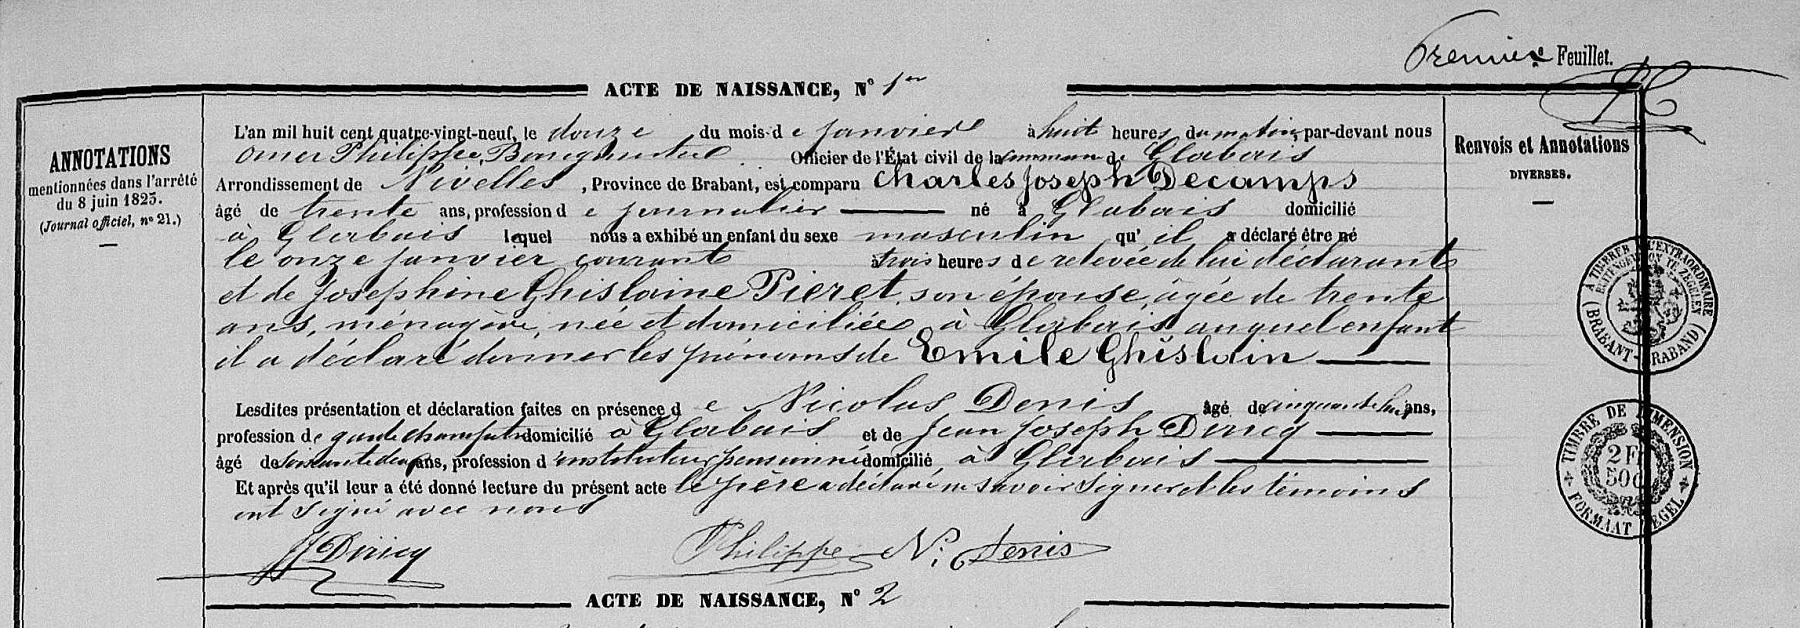 Premier e Feuillet.
ACTE DE NAISSANCE, N° 1er
ANNOTATIONS
mentionnées dans l'arrêté
du 8 juin 1823.
(Journal officiel, n° 21.)
L'an mil huit cent quatre-vingt-neuf, le douze du mois de janvier à huit heures du matin, par-devant nous
Omer Philippe, Officier de l'État civil de la commune de Glabais
Arrondissement de Nivelles, Province de Brabant, est comparu Charles Joseph Decamps
âgé de trente ans, profession de journalier né à Glabais domicilié
à Glabais lequel nous a exhibé un enfant du sexe masculin qu'il a déclaré être né
le onze janvier courant à trois heures de relevée de lui déclarant
et de Joséphine Ghislaine Pieret, son épouse, âgée de trente
ans, ménagère, née et domiciliée à Glabais auquel enfant
il a déclaré donner les prénoms de Emile Ghislain
Lesdites présentation et déclaration faites en présence de Nicolas Denis âgé de cinquante huit ans,
profession de garde champêtre domicilié à Glabais et de Jean Joseph Diricq
âgé de soixante deux ans, profession d'instituteur pensionné domicilié à Glabais
Et après qu'il leur a été donné lecture du présent acte le père a déclaré ne savoir signer et les témoins
ont signé avec nous
JJ Diricq Philippe N: Denis
ACTE DE NAISSANCE, N° 2
Renvois et Annotations
DIVERSES.
A TIMBRER À L'EXTRAORDINAIRE
BUITENGEWOON TE ZEGELEN
(BRABANT - BRABAND)
TIMBRE DE DIMENSION
2F
50C
FORMAAT ZEGEL